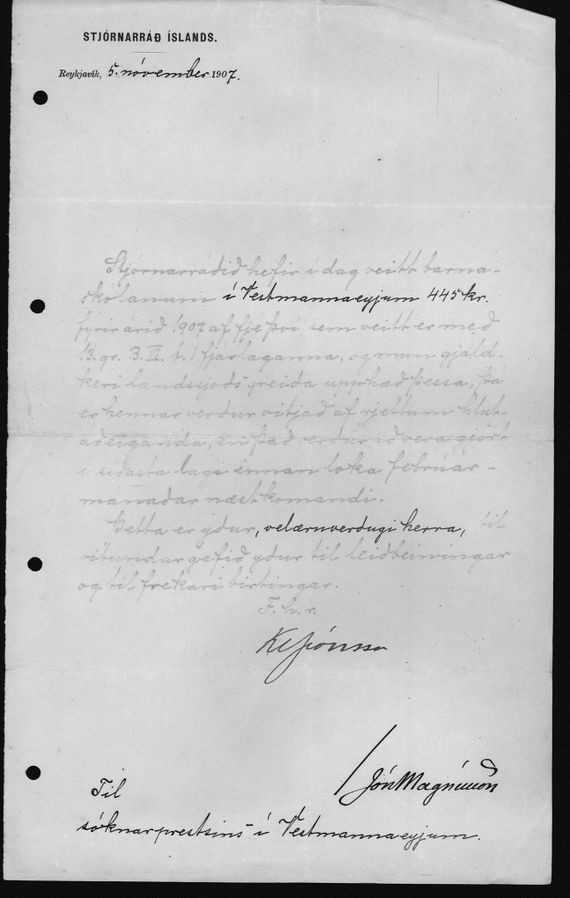 STJÓRNARRÁÐ ÍSLANDS.
Reykjavík, 5. nóvember 1907.
Stjórnarráðið hefir í dag veitt barna-
skólanum í Vestmannaeyjum 445 kr.
fyrir árið 1907 af fje því, sem veitt er með
13. gr. B. VI. b. 1 fjárlaganna, og mun gjald-
keri landssjóðs greiða upphæð þessa, þá
er hennar verður vitjað af rjettum hlut-
aðeiganda, en það verður að vera gjört
í síðasta lagi innan loka febrúar-
mánaðar næstkomandi.
Þetta er yður, velæruverðugi herra, til
vitundar gefið yður til leiðbeiningar
og til frekari birtingar.
F. h. r.
Kl Jónsson
Jón Magnússon
Til
sóknarprestsins í Vestmannaeyjum.